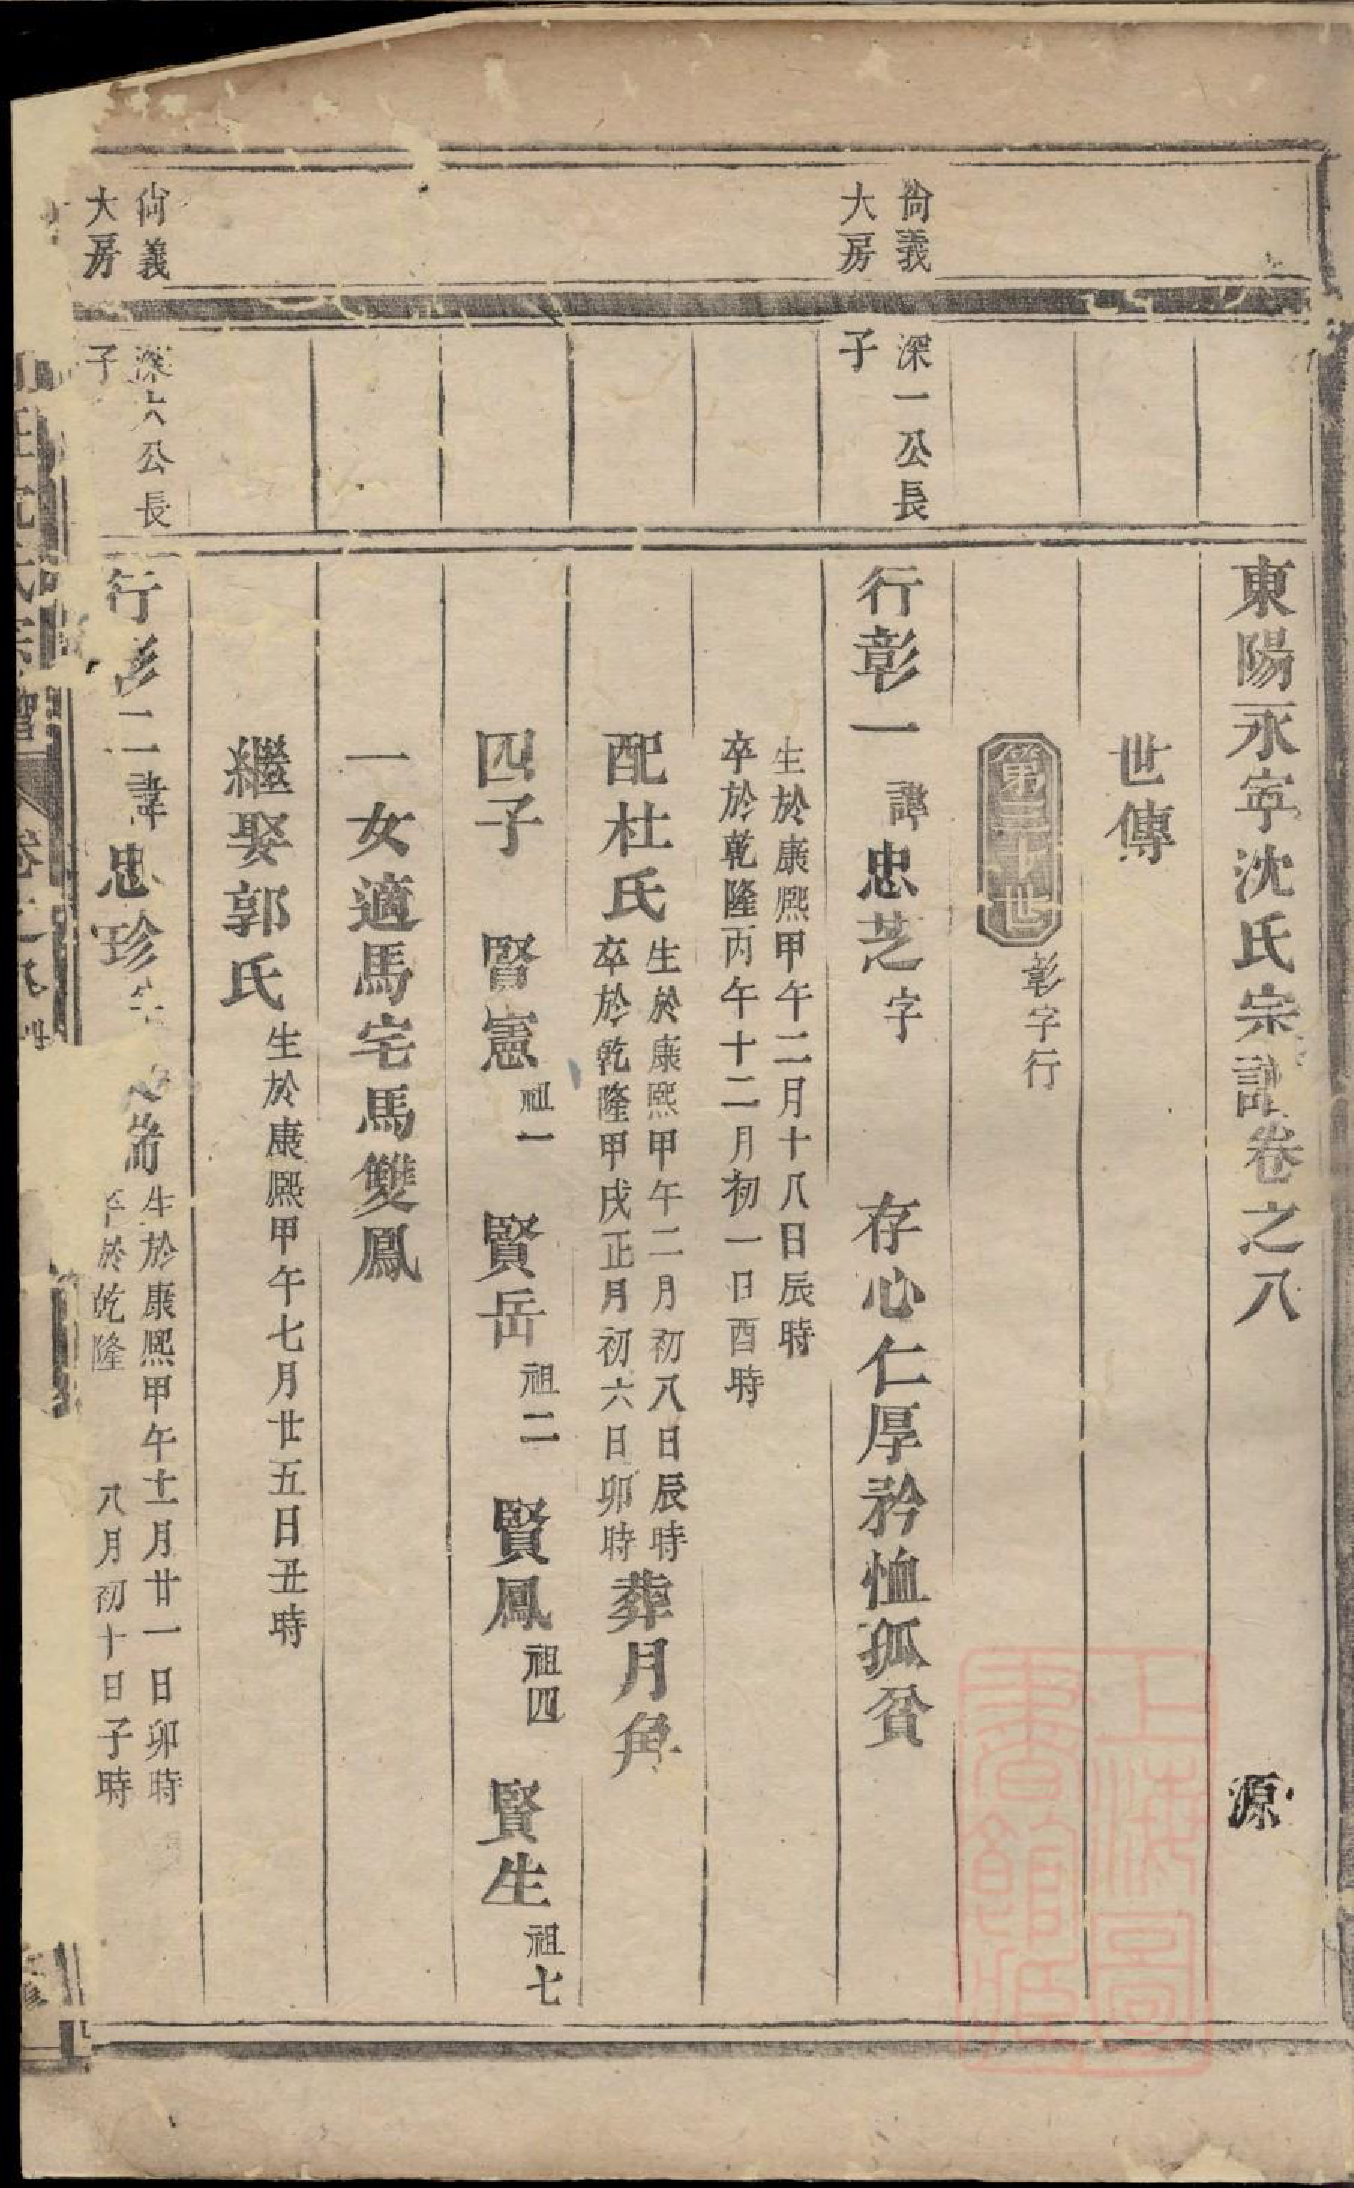 東陽永寜沈氏宗譜卷之八 源
世傳
第三十世 彰字行
尙義
大房
深一公長
子
行彰一 諱忠芝字 存心仁厚矜恤孤貧
生於康熈甲午二月十八日辰時
卒於乾隆丙午十二月初一日酉時
配杜氏
生於康熈甲午二月初八日辰時
卒於乾隆甲戌正月初六日卯時
葬月角
四子 賢憲祖一 賢岳祖二 賢鳳祖四 賢生祖七
一女適馬宅馬雙鳳
繼娶郭氏 生於康熈甲午七月廿五日丑時
尙義
大房
深六公長
子
行彰二諱忠珍字
生於康熈甲午十一月廿一日卯時
卒於乾隆 八月初十日子時
上海圖
書館藏